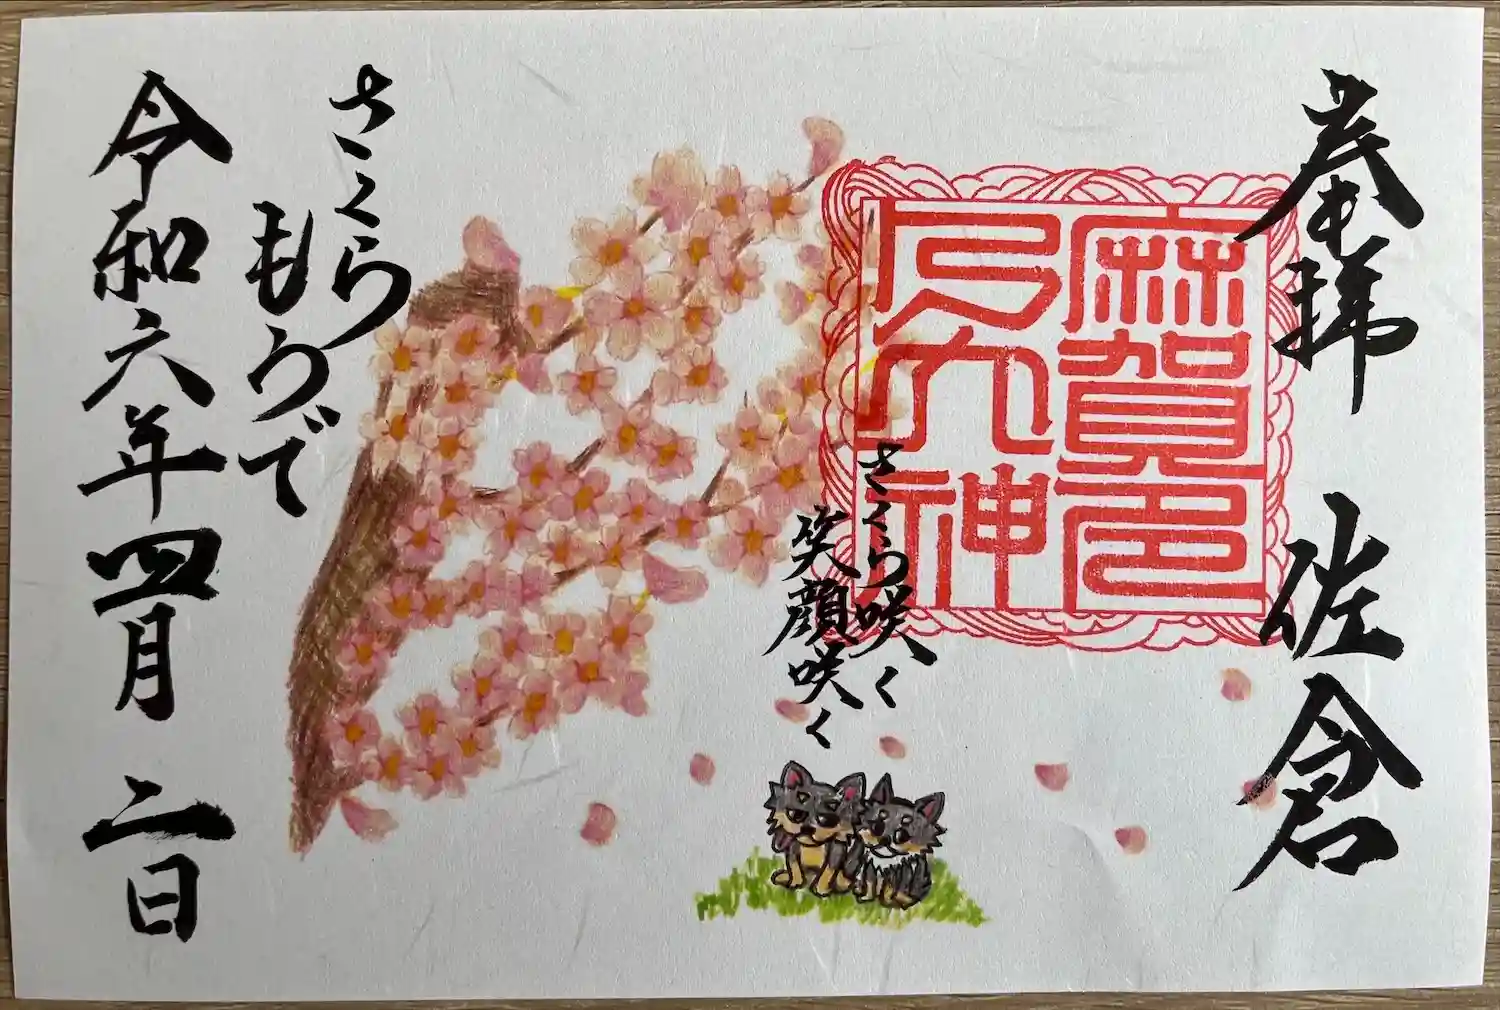 奉拝　佐倉
麻賀多
大神
さくら咲く
笑顔咲く
さくら
もうで
令和六年四月二日